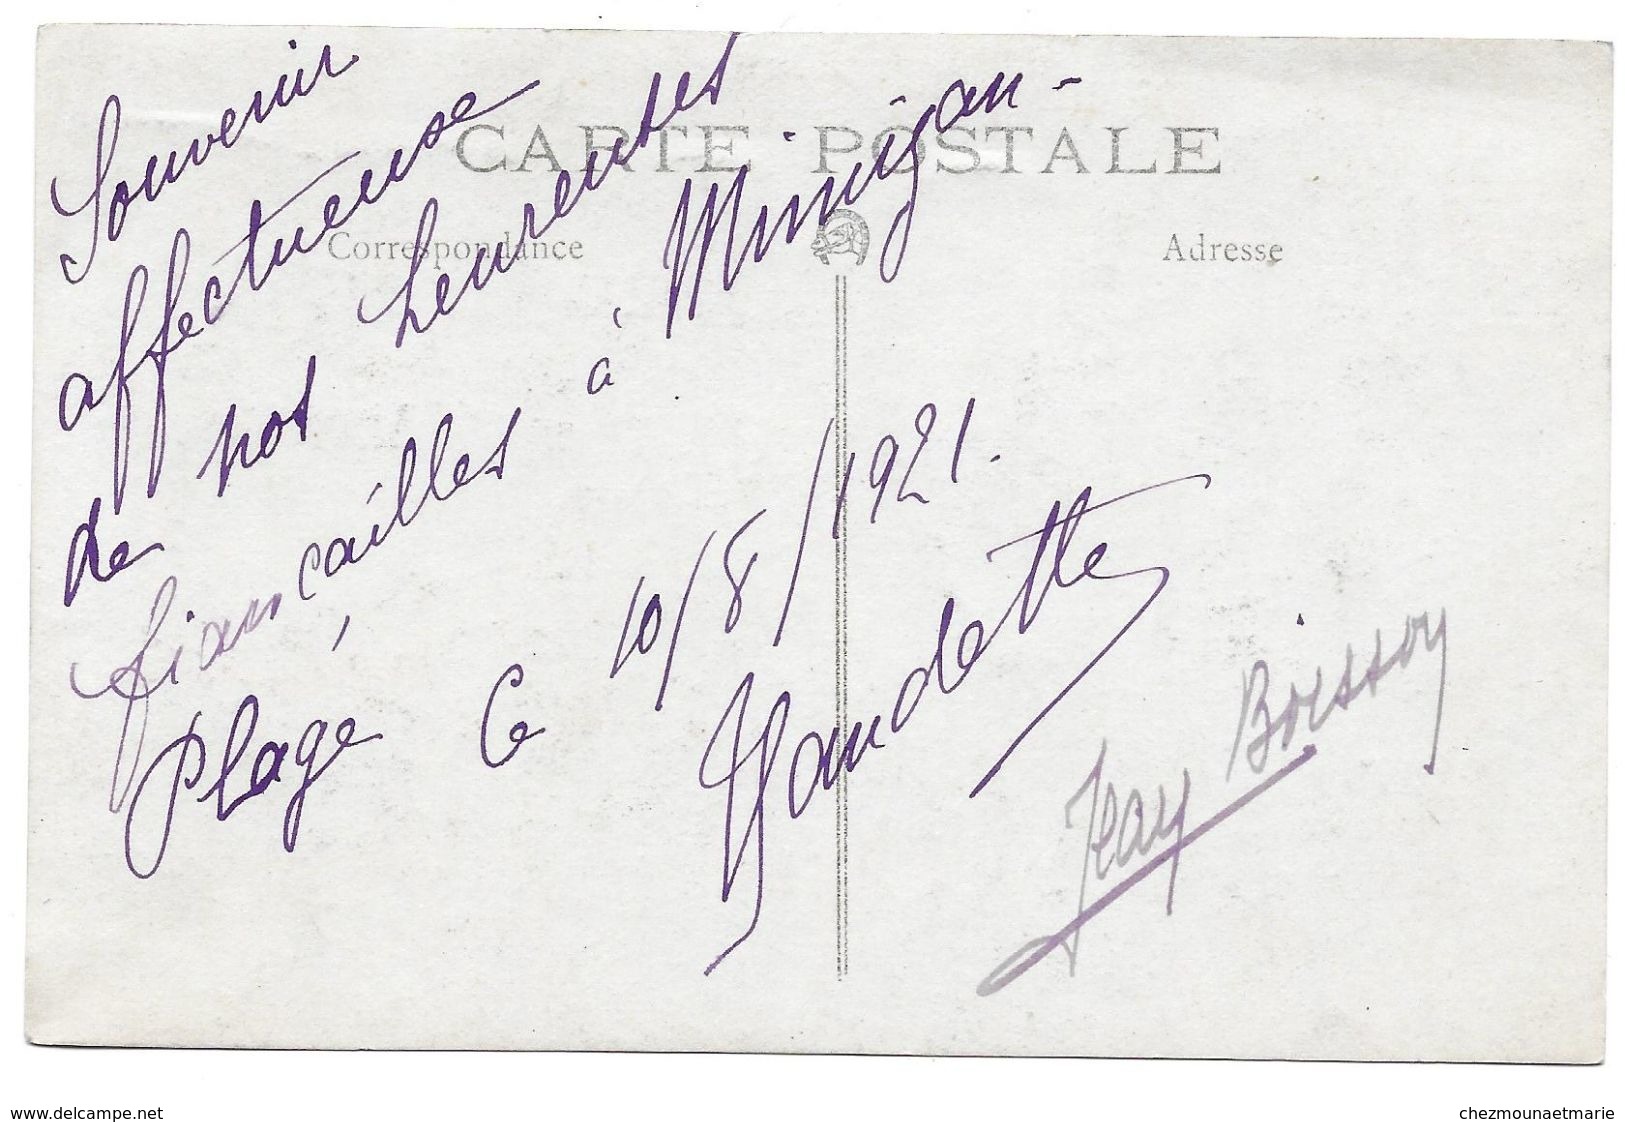 CARTE POSTALE
Correspondance
Adresse
Souvenir
affectueuse
de nos heureuses
fiançailles à Mimizan -
Plage, le 10/8/1921.
Jean Boisson
www.delcampe.net
chezmounaetmarie